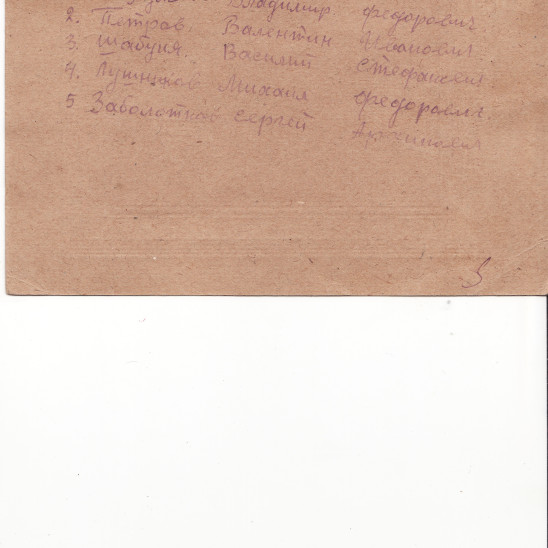 Владимир Федорович
2. Петров Валентин Иванович
3. Шабуня Василий Стефанович
4. Лушников Михаил Федорович.
5 Заболотнов Сергей